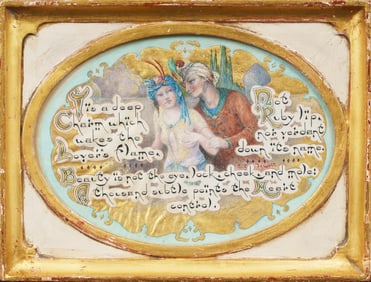 'Tis a deep
Charm which
wakes the
Lovers flame,
Not
Ruby lip,
nor verdant
down its name.
Beauty is not the eye, lock, cheek, and mole;
A thousand suttle points the Heart
control.